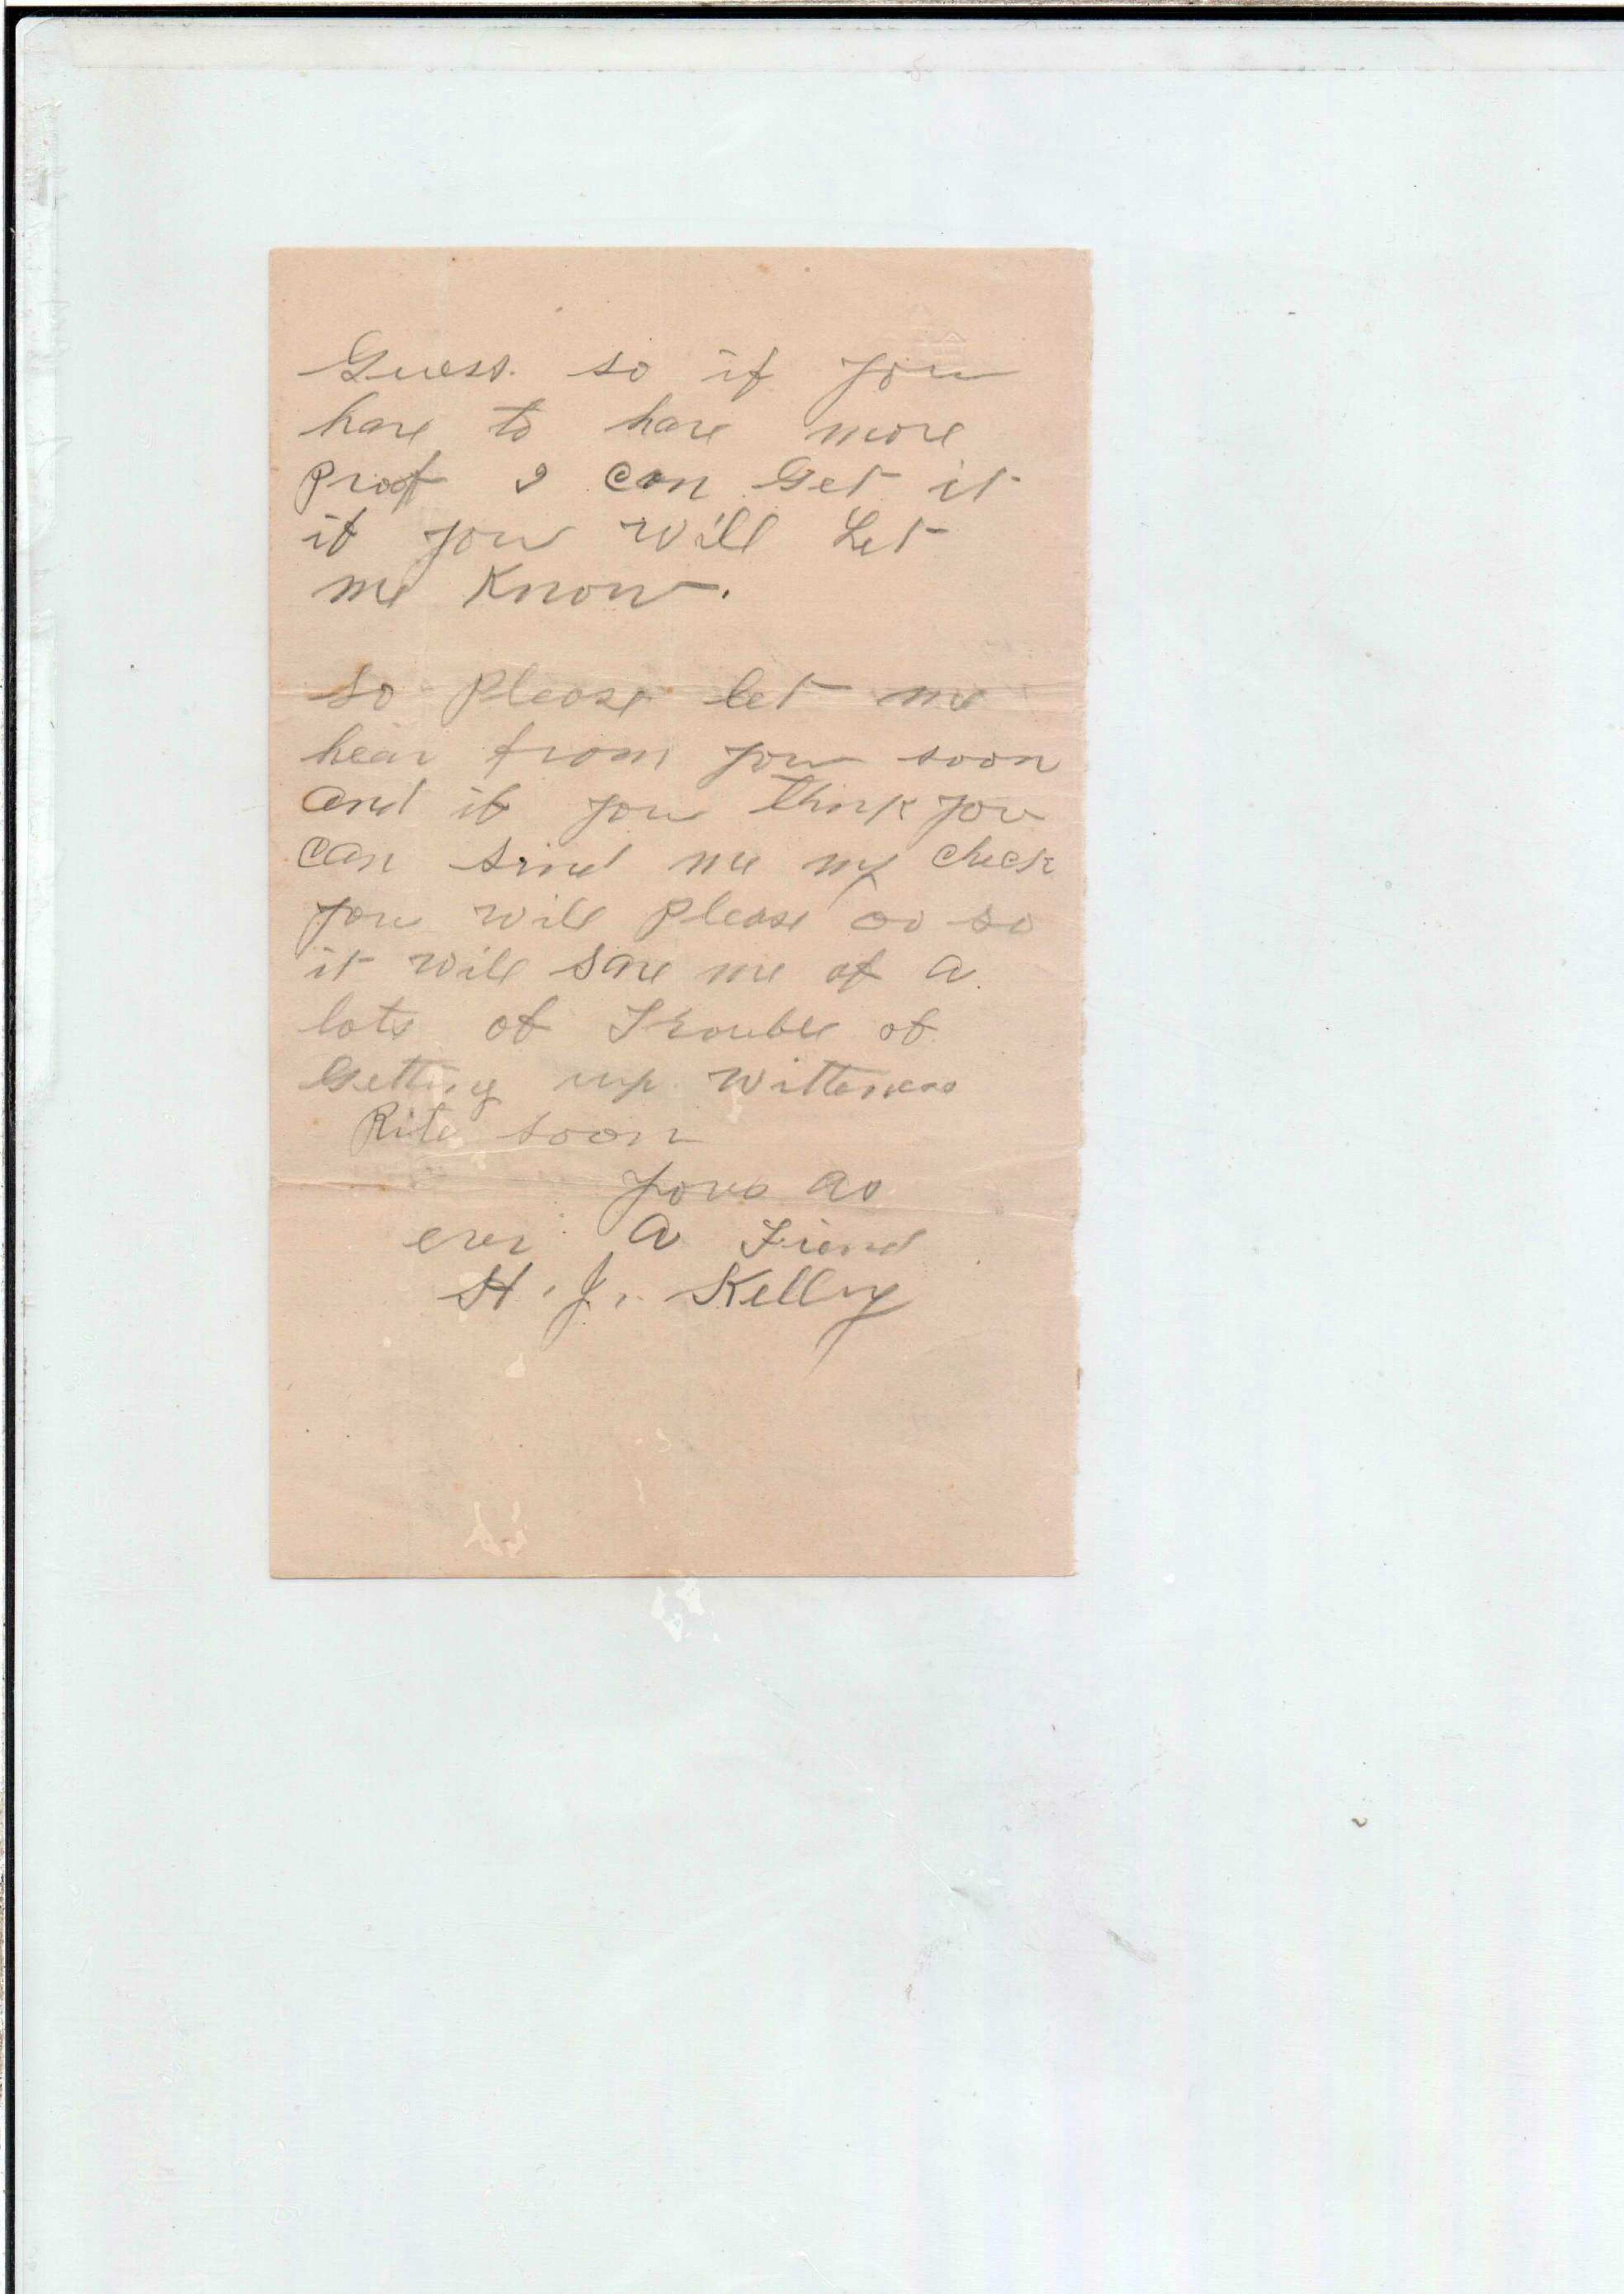 Guess. so if you
have to have more
Proof I can Get it
if you will Let
me Know.
So Please let me
hear from you soon
and if you think you
can send me my check
you will Please do so
it will save me of a
lots of Trouble of
Getting up Wittness
Rite soon
yours as
ever a Friend
H. J. Kelley